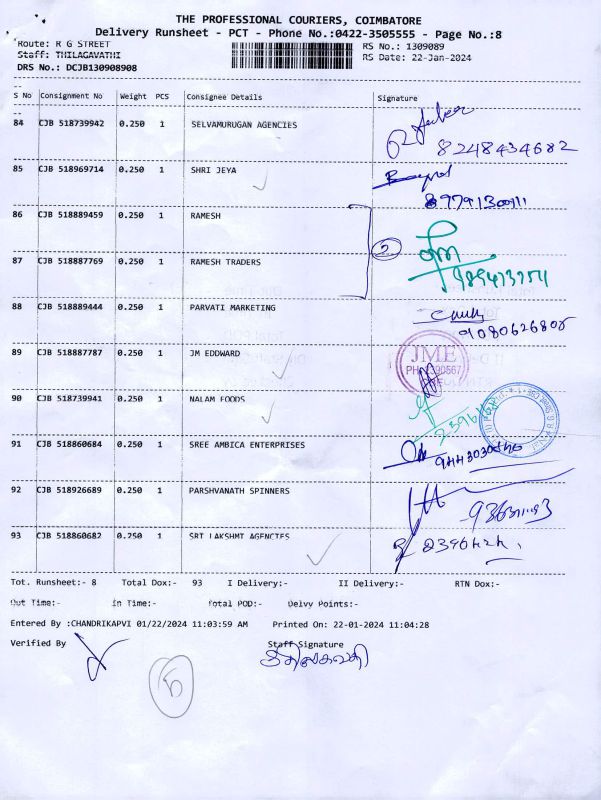 THE PROFESSIONAL COURIERS, COIMBATORE
Delivery Runsheet - PCT - Phone No.:0422-3505555 - Page No.:8
Route: R G STREET RS No.: 1309089
Staff: THILAGAVATHI RS Date: 22-Jan-2024
DRS No.: DCJB130908908
S No Consignment No Weight PCS Consignee Details Signature
84 CJB 518739942 0.250 1 SELVAMURUGAN AGENCIES
8248434682
85 CJB 518969714 0.250 1 SHRI JEYA
86 CJB 518889459 0.250 1 RAMESH
2
87 CJB 518887769 0.250 1 RAMESH TRADERS
88 CJB 518889444 0.250 1 PARVATI MARKETING
9080626808
89 CJB 518887787 0.250 1 JM EDDWARD JME
90 CJB 518739941 0.250 1 NALAM FOODS
91 CJB 518860684 0.250 1 SREE AMBICA ENTERPRISES
92 CJB 518926689 0.250 1 PARSHVANATH SPINNERS
93 CJB 518860682 0.250 1 SRI LAKSHMI AGENCIES
Tot. Runsheet:- 8 Total Dox:- 93 I Delivery:- II Delivery:- RTN Dox:-
Out Time:- In Time:- Total POD:- Delvy Points:-
Entered By :CHANDRIKAPVI 01/22/2024 11:03:59 AM Printed On: 22-01-2024 11:04:28
Verified By Staff Signature
திலகவதி